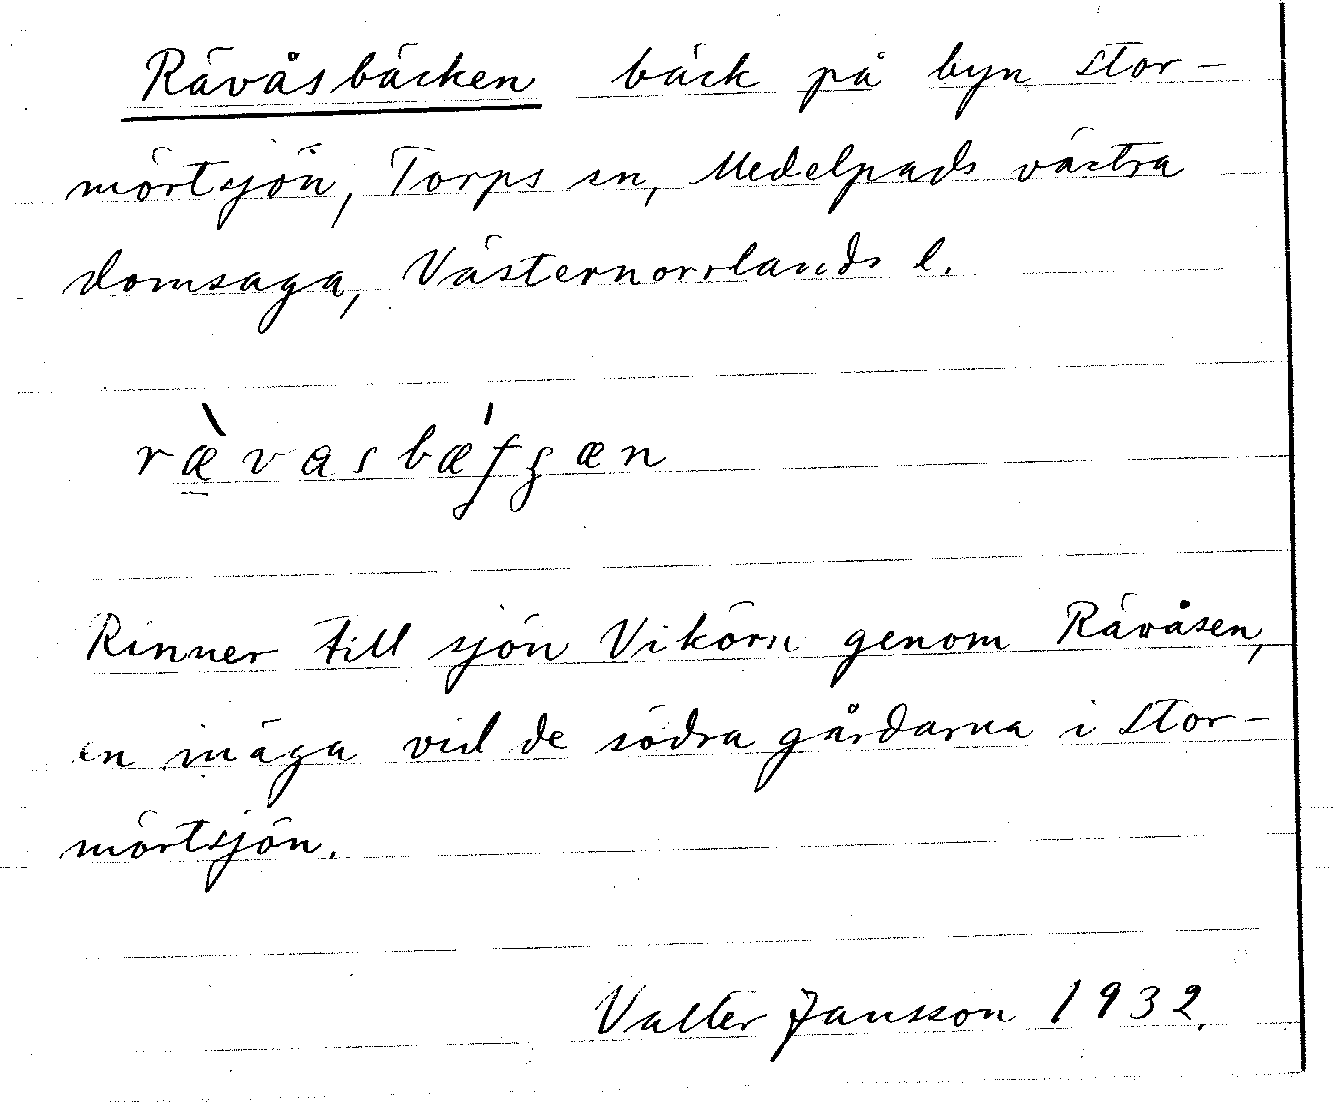 Rävåsbäcken bäck på byn Stor-
mörtsjön, Torps sn, Medelpads västra
domsaga, Västernorrlands l.
ræ̀vasbǽʃʒæn
Rinner till sjön Vikörn genom Rävåsen,
en mäga vid de södra gårdarna i Stor-
mörtsjön.
Valter Jansson 1932.